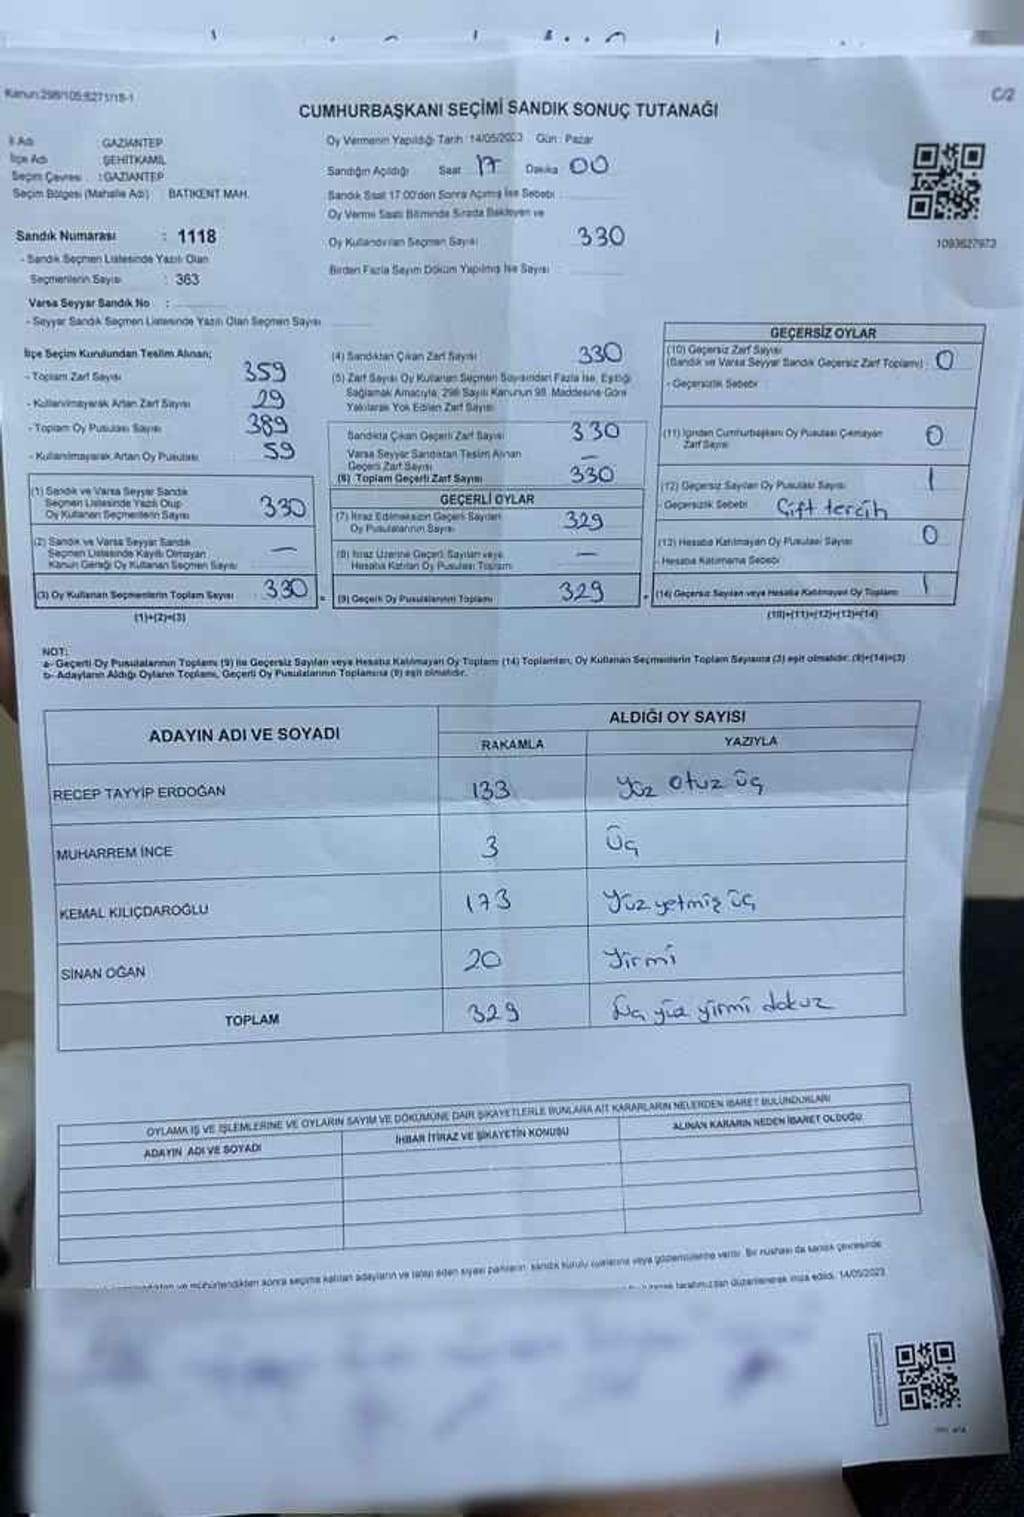 Kanun:298/105;6271/18-1
C/2
CUMHURBAŞKANI SEÇİMİ SANDIK SONUÇ TUTANAĞI
İl Adı : GAZİANTEP
İlçe Adı : ŞEHİTKAMİL
Seçim Çevresi : GAZİANTEP
Seçim Bölgesi (Mahalle Adı) : BATIKENT MAH.
Sandık Numarası : 1118
- Sandık Seçmen Listesinde Yazılı Olan
Seçmenlerin Sayısı : 363
Varsa Seyyar Sandık No :
- Seyyar Sandık Seçmen Listesinde Yazılı Olan Seçmen Sayısı
Oy Vermenin Yapıldığı Tarih : 14/05/2023 Gün : Pazar
Sandığın Açıldığı Saat 17 Dakika 00
Sandık Saat 17:00'den Sonra Açılmış İse Sebebi :
Oy Verme Saati Bitiminde Sırada Bekleyen ve
Oy Kullandırılan Seçmen Sayısı 330
Birden Fazla Sayım Döküm Yapılmış İse Sayısı
1093627973
İlçe Seçim Kurulundan Teslim Alınan;
- Toplam Zarf Sayısı 359
- Kullanılmayarak Artan Zarf Sayısı 29
- Toplam Oy Pusulası Sayısı 389
- Kullanılmayarak Artan Oy Pusulası 59
(1) Sandık ve Varsa Seyyar Sandık
Seçmen Listesinde Yazılı Olup
Oy Kullanan Seçmenlerin Sayısı 330
(2) Sandık ve Varsa Seyyar Sandık
Seçmen Listesinde Kayıtlı Olmayan
Kanun Gereği Oy Kullanan Seçmen Sayısı —
(3) Oy Kullanan Seçmenlerin Toplam Sayısı : 330
(1)+(2)=(3)
(4) Sandıktan Çıkan Zarf Sayısı 330
(5) Zarf Sayısı Oy Kullanan Seçmen Sayısından Fazla İse, Eşitliği
Sağlamak Amacıyla, 298 Sayılı Kanunun 98. Maddesine Göre
Yakılarak Yok Edilen Zarf Sayısı
Sandıkta Çıkan Geçerli Zarf Sayısı 330
Varsa Seyyar Sandıktan Teslim Alınan
Geçerli Zarf Sayısı —
(6) Toplam Geçerli Zarf Sayısı 330
GEÇERLİ OYLAR
(7) İtiraz Edilmeksizin Geçerli Sayılan
Oy Pusulalarının Sayısı 329
(8) İtiraz Üzerine Geçerli Sayılan veya
Hesaba Katılan Oy Pusulası Toplamı —
= (9) Geçerli Oy Pusulalarının Toplamı 329
GEÇERSİZ OYLAR
(10) Geçersiz Zarf Sayısı
(Sandık ve Varsa Seyyar Sandık Geçersiz Zarf Toplamı) : 0
- Geçersizlik Sebebi
(11) İçinden Cumhurbaşkanı Oy Pusulası Çıkmayan
Zarf Sayısı 0
(12) Geçersiz Sayılan Oy Pusulası Sayısı 1
- Geçersizlik Sebebi Çift tercih
(13) Hesaba Katılmayan Oy Pusulası Sayısı 0
- Hesaba Katılmama Sebebi
+ (14) Geçersiz Sayılan veya Hesaba Katılmayan Oy Toplamı 1
(10)+(11)+(12)+(13)=(14)
NOT:
a- Geçerli Oy Pusulalarının Toplamı (9) ile Geçersiz Sayılan veya Hesaba Katılmayan Oy Toplamı (14) Toplamları, Oy Kullanan Seçmenlerin Toplam Sayısına (3) eşit olmalıdır. (9)+(14)=(3)
b- Adayların Aldığı Oyların Toplamı, Geçerli Oy Pusulalarının Toplamına (9) eşit olmalıdır.
ADAYIN ADI VE SOYADI
ALDIĞI OY SAYISI
RAKAMLA YAZIYLA
RECEP TAYYİP ERDOĞAN 133 Yüz otuz üç
MUHARREM İNCE 3 Üç
KEMAL KILIÇDAROĞLU 173 Yüz yetmiş üç
SİNAN OĞAN 20 Yirmi
TOPLAM 329 Üç yüz yirmi dokuz
OYLAMA İŞ VE İŞLEMLERİNE VE OYLARIN SAYIM VE DÖKÜMÜNE DAİR ŞİKAYETLERLE BUNLARA AİT KARARLARIN NELERDEN İBARET BULUNDUKLARI
ADAYIN ADI VE SOYADI
İHBAR İTİRAZ VE ŞİKAYETİN KONUSU
ALINAN KARARIN NEDEN İBARET OLDUĞU
mühürlendikten sonra seçime katılan adayların ve talep eden siyasi partilerin, sandık kurulu üyelerine veya gözlemcilerine verilir. Bir nüshası da sandık çevresinde
tarafımızdan düzenlenerek imza edildi. 14/05/2023